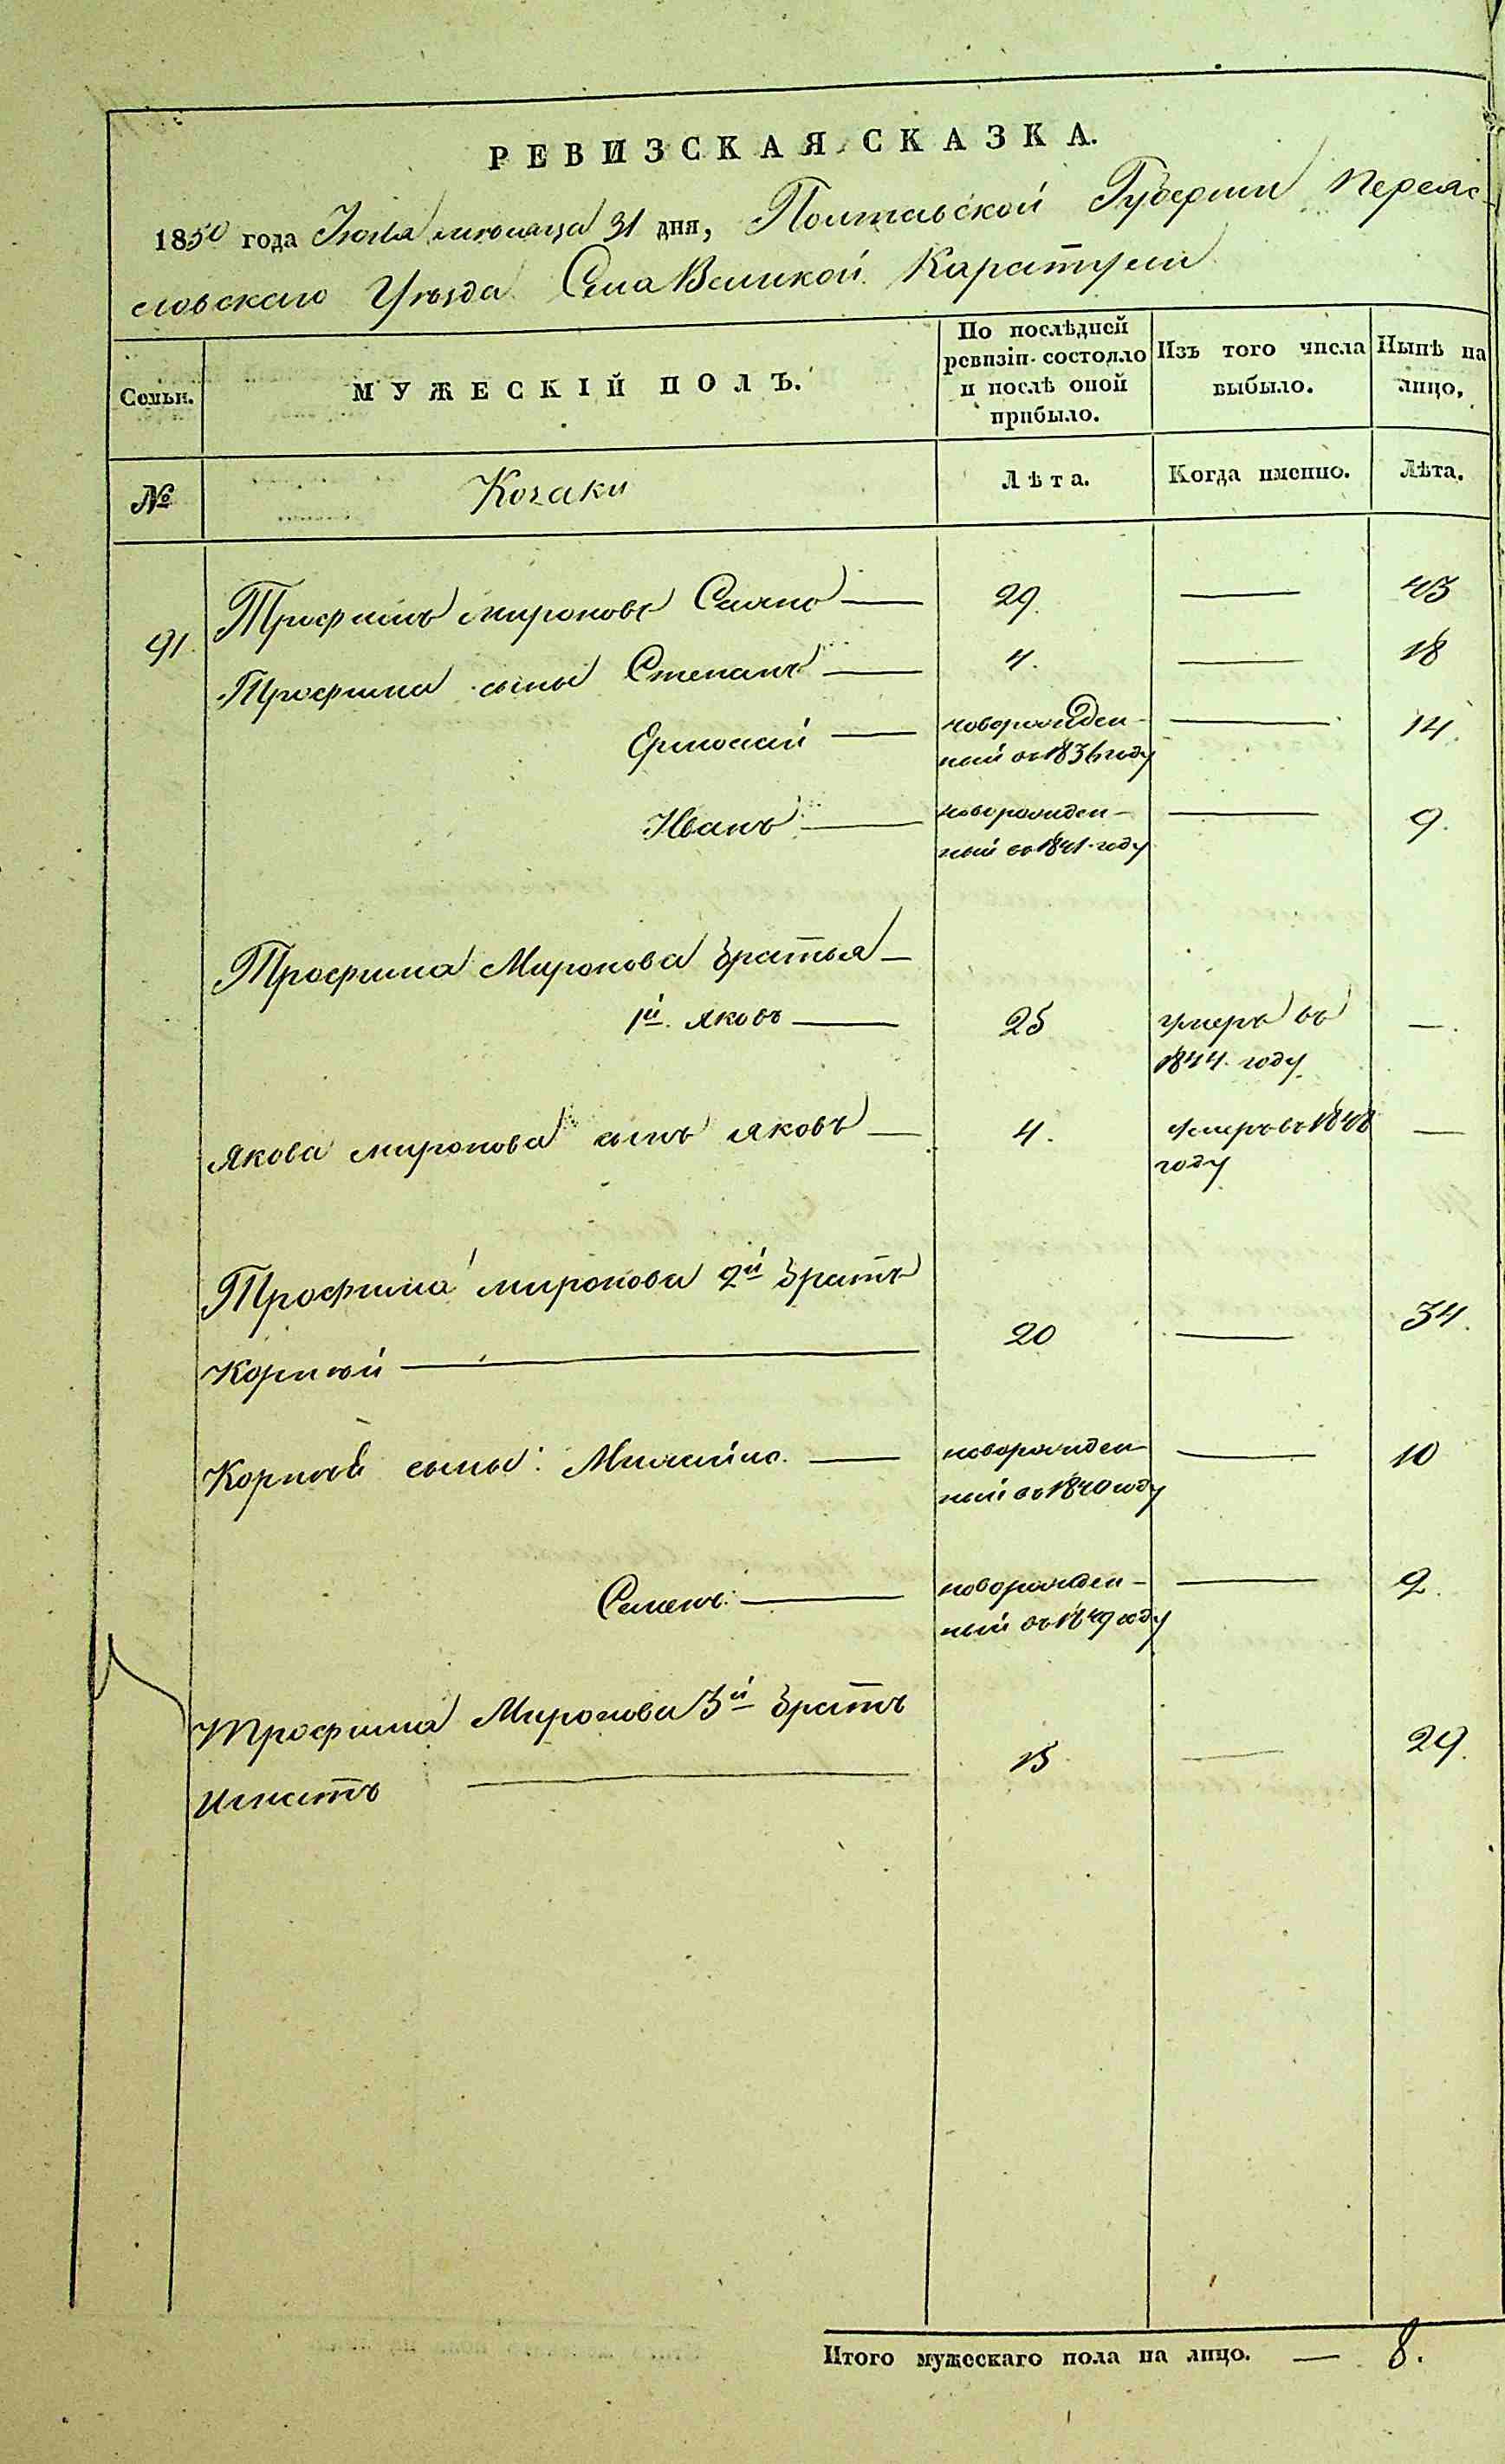 РЕВИЗСКАЯ СКАЗКА.
1850 года Июля мѣсяца 31 дня, Полтавской Губерніи Переяс-
ловскаго Уѣзда Села Великой Каратули
Семьи. МУЖЕСКІЙ ПОЛЪ. По послѣдней ревизіи состояло и послѣ оной прибыло. Изъ того числа выбыло. Нынѣ на лицо.
№ Козаки Лѣта. Когда именно. Лѣта.
91. Трофимъ Мироновъ — 29. — 43
Трофима сыны Степанъ — 4. — 18
Ермолай — новорожден-
ный въ 1836 году — 14.
Иванъ — новорожден-
ный въ 1841 году — 9.
Трофима Миронова братья —
1й. Яковъ — 25 умеръ въ —
1844 году
Якова Миронова сынъ Яковъ — 4. умеръ въ 1848 —
году
Трофима Миронова 2й братъ
Корнѣй — 20 — 34.
Корнѣя сыны: — новорожден- — 10
ный въ 1840 году
Семенъ — новорожден- — 2.
ный въ 1849 году
Трофима Миронова 3й братъ
Игнатъ — 15 — 29.
Итого мужескаго пола на лицо. — 8.